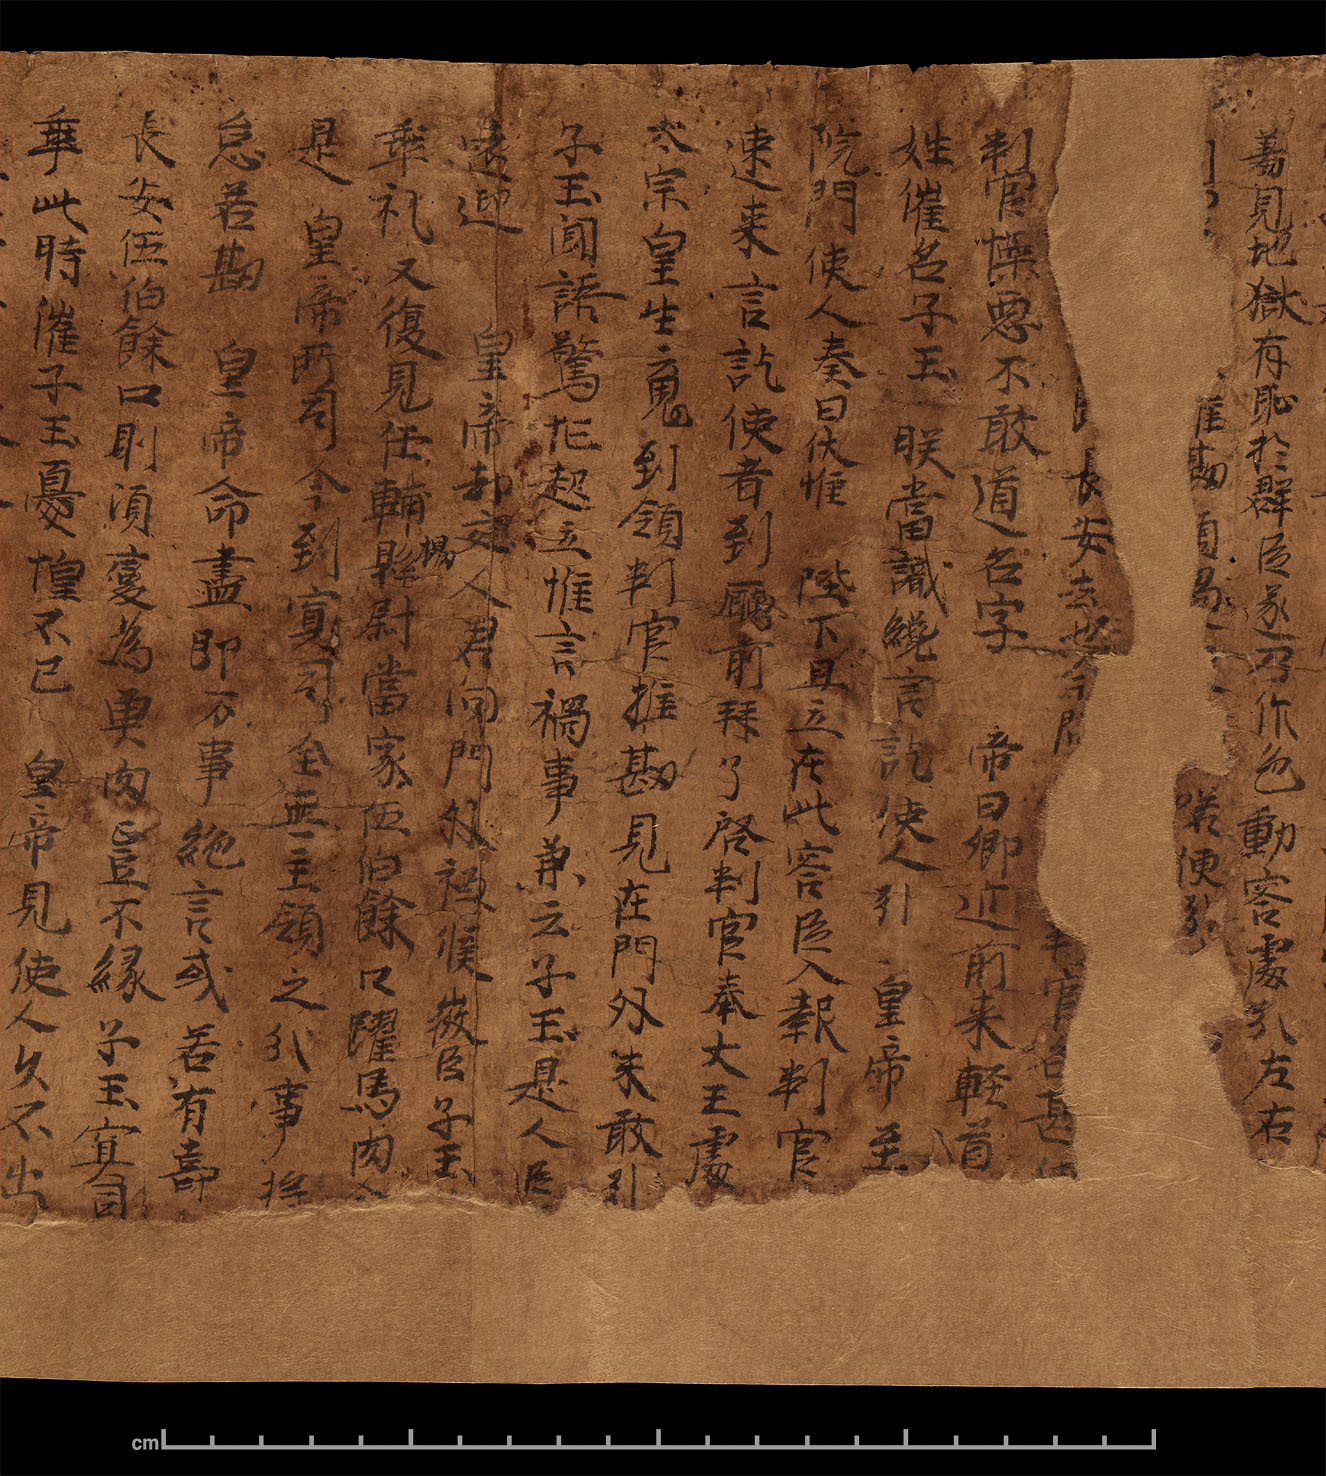 善見地獄有恥於群臣遂乃作色動容處分左右
推勘須
咲便引
長安去也
判官名甚
判官懆惡不敢道名字 帝曰卿近前来軽道
姓催名子玉 朕當識纔言訖使人引 皇帝至
院門使人奏曰伏惟 陛下且立在此容臣入報判官
速来言訖使者到廳前拜了啓判官奉大王處
太宗皇生魂到領判官推勘見在門外未敢引
子玉聞語驚忙起立惟言禍事兼云子玉是人臣
遠迎 皇帝却交人君向門外祗候微臣子玉
乖礼又復見任輔陽縣尉當家伍伯餘口躍馬肉食
是 皇帝所司今到冥司全無主領之分事將
怠若勘 皇帝命盡即万事絶言或若有壽
長安伍伯餘口則須變為魚肉豈不緣子玉冥司
乖此時催子玉憂惶不已 皇帝見使人久不出